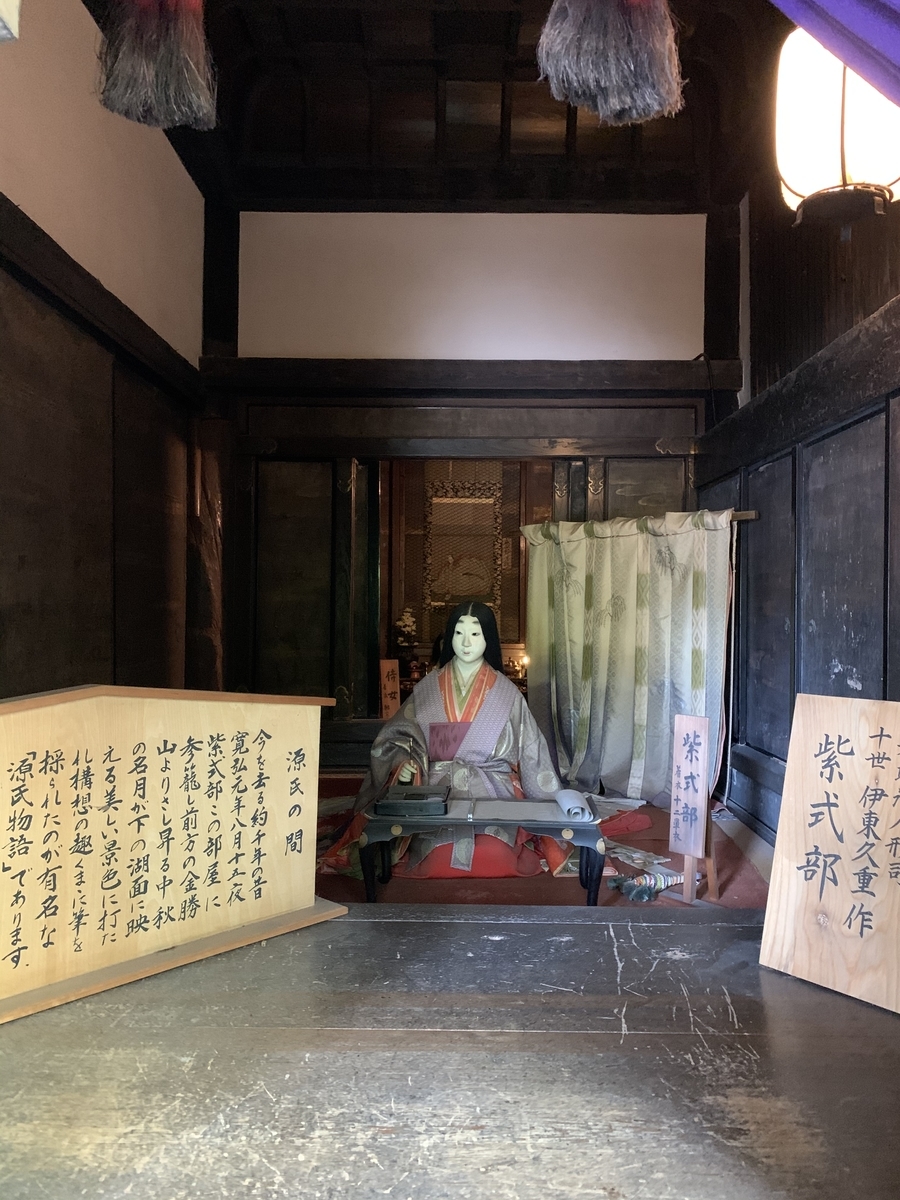 源氏の間
今を去る約千年の昔
寛弘元年八月十五夜
紫式部この部屋に
参籠し前方の金勝
山よりさし昇る中秋
の名月が下の湖面に映
える美しい景色に打た
れ構想の趣くまゝに筆を
採られたのが有名な
「源氏物語」であります.
侍女
紫式部
人形司
十世 伊東久重作
紫式部